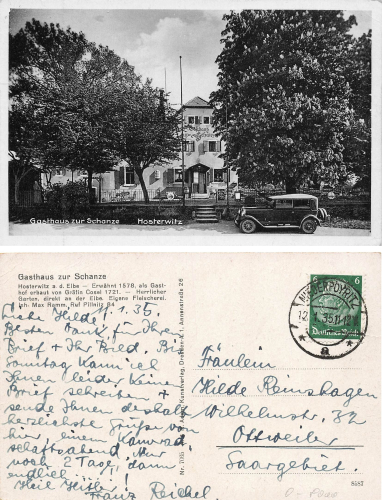 Gasthaus zur Schanze Hosterwitz
Gasthaus zur Schanze
Hosterwitz a. d. Elbe — Erwähnt 1578, als Gast-
hof erbaut von Gräfin Cosel 1721. — Herrlicher
Garten, direkt an der Elbe. Eigene Fleischerei.
Joh. Max Hamm, Ruf Pillnitz 84
1.35.
Liebe Hilde!
Besten Dank für Ihren
Brief + Ihr Bild. Bis
Sonntag kann ich
Ihnen leider keinen
Brief schreiben +
sende Ihnen deshalb
herzlichste Grüsse von
hier, einem Kamerad-
schaftsabend. Nur
noch 2 Tage, dann
endlich
Heil Hitler!
Franz Reichel
Kunstverlag, Dresden-A. 1, Annenstraße 26
6 6
Deutsches Reich
NIEDERPOYRITZ
12. 35.11-12
a
Fräulein
Hilde Remshagen
Wilhelmstr. 32
Ottweiler
Saargebiet.